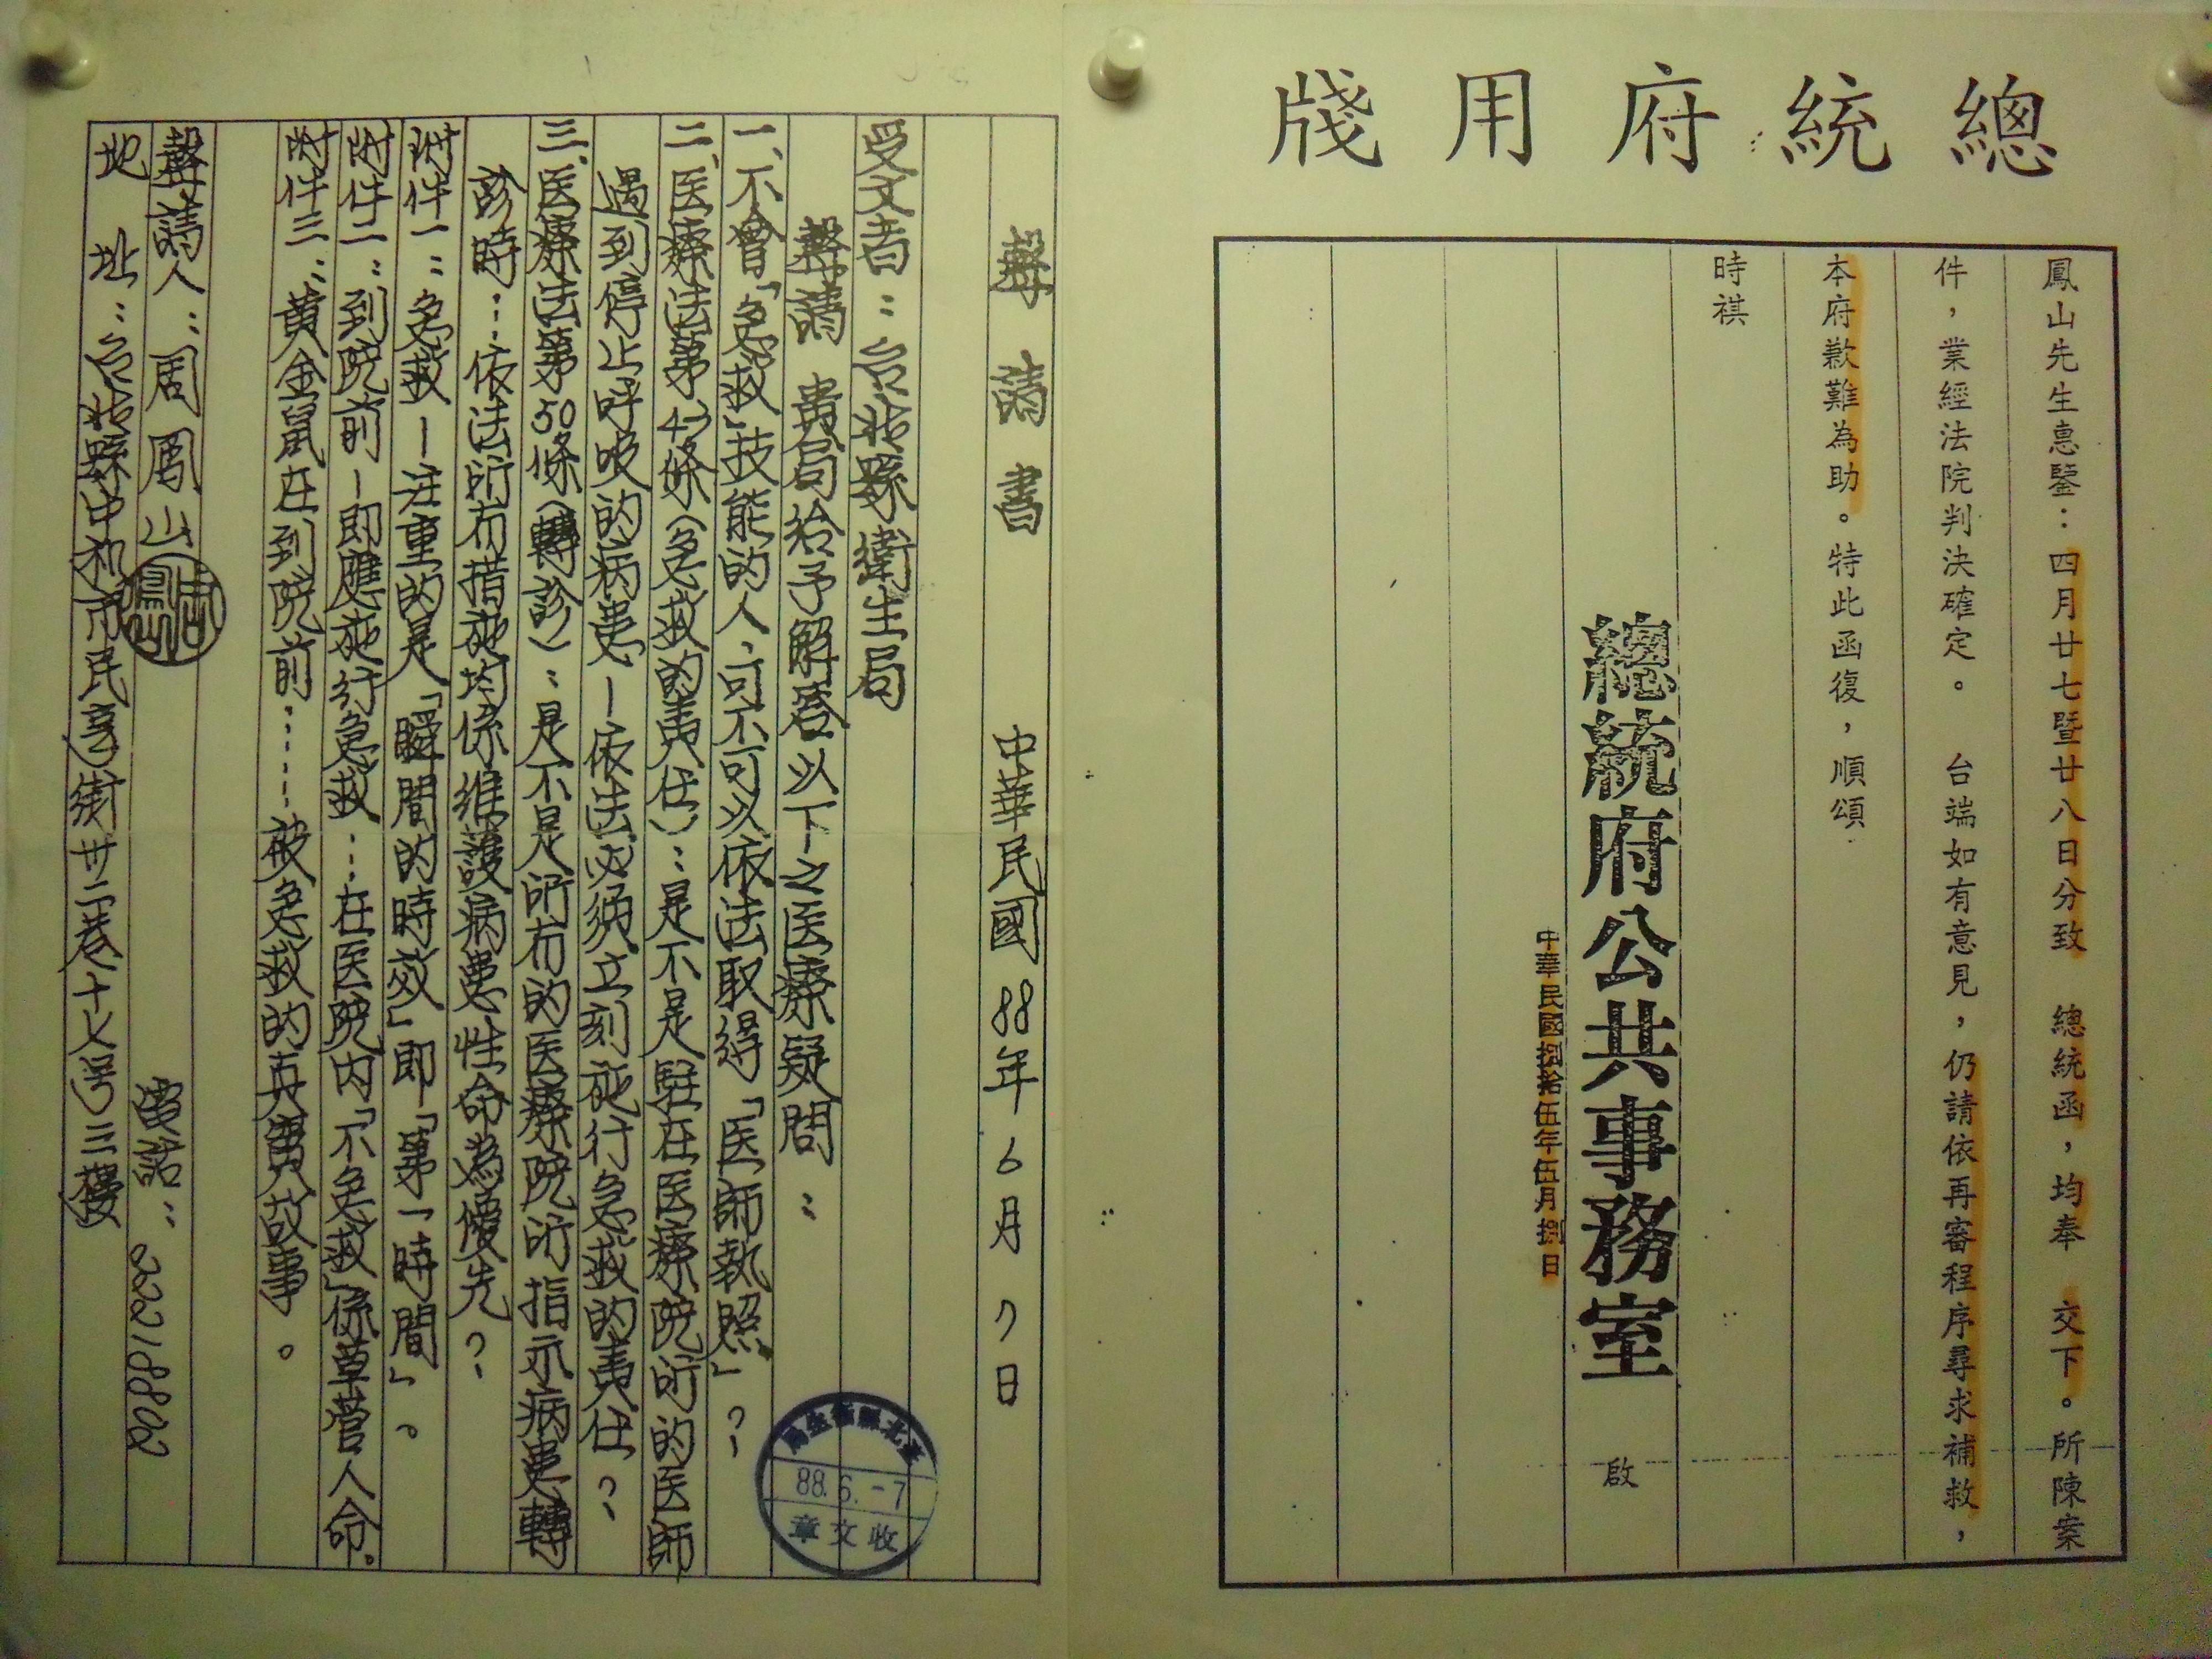 總統府用牋
鳳山先生惠鑒：四月廿七暨廿八日分致　總統函，均奉　交下。所陳案
件，業經法院判決確定。　台端如有意見，仍請依再審程序尋求補救，
本府歉難為助。特此函復，順頌
時祺
總統府公共事務室　啟
中華民國捌拾伍年伍月捌日
聲請書　中華民國88年6月7日
受文者：台北縣衛生局
聲請　貴局給予解答以下之医療疑問：
一、不會「急救」技能的人，可不可以依法取得「医師執照」？
二、医療法第43條（急救的責任）：是不是駐在医療院所的医師
遇到停止呼吸的病患－依法必須立刻施行急救的責任？
三、医療法第50條（轉診）：是不是所有的医療院所指示病患轉
診時…依法所有措施均係維護病患性命為優先？
附件一：急救－注重的是「瞬間的時效」即「第一時間」。
附件二：到院前－即應施行急救…在医院內「不急救」係草菅人命。
附件三：黃金鼠在到院前……被急救的真實故事。
聲請人：周鳳山　電話：22218822
周鳳山
地　址：台北縣中和市民享街廿二巷十七号三樓
臺北縣衛生局
88.6.-7
收文章